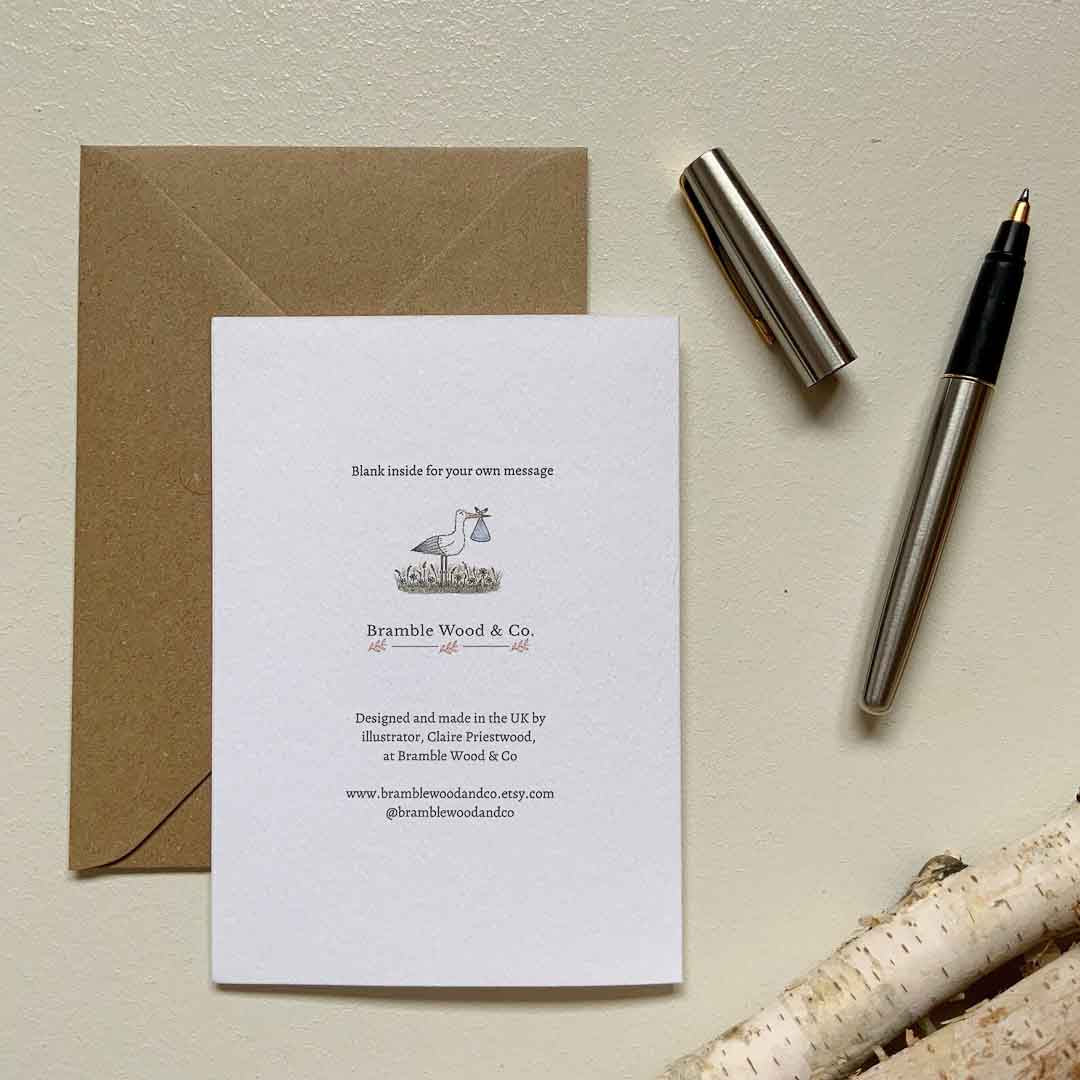 Blank inside for your own message
Bramble Wood & Co.
Designed and made in the UK by
illustrator, Claire Priestwood,
at Bramble Wood & Co
www.bramblewoodandco.etsy.com
@bramblewoodandco